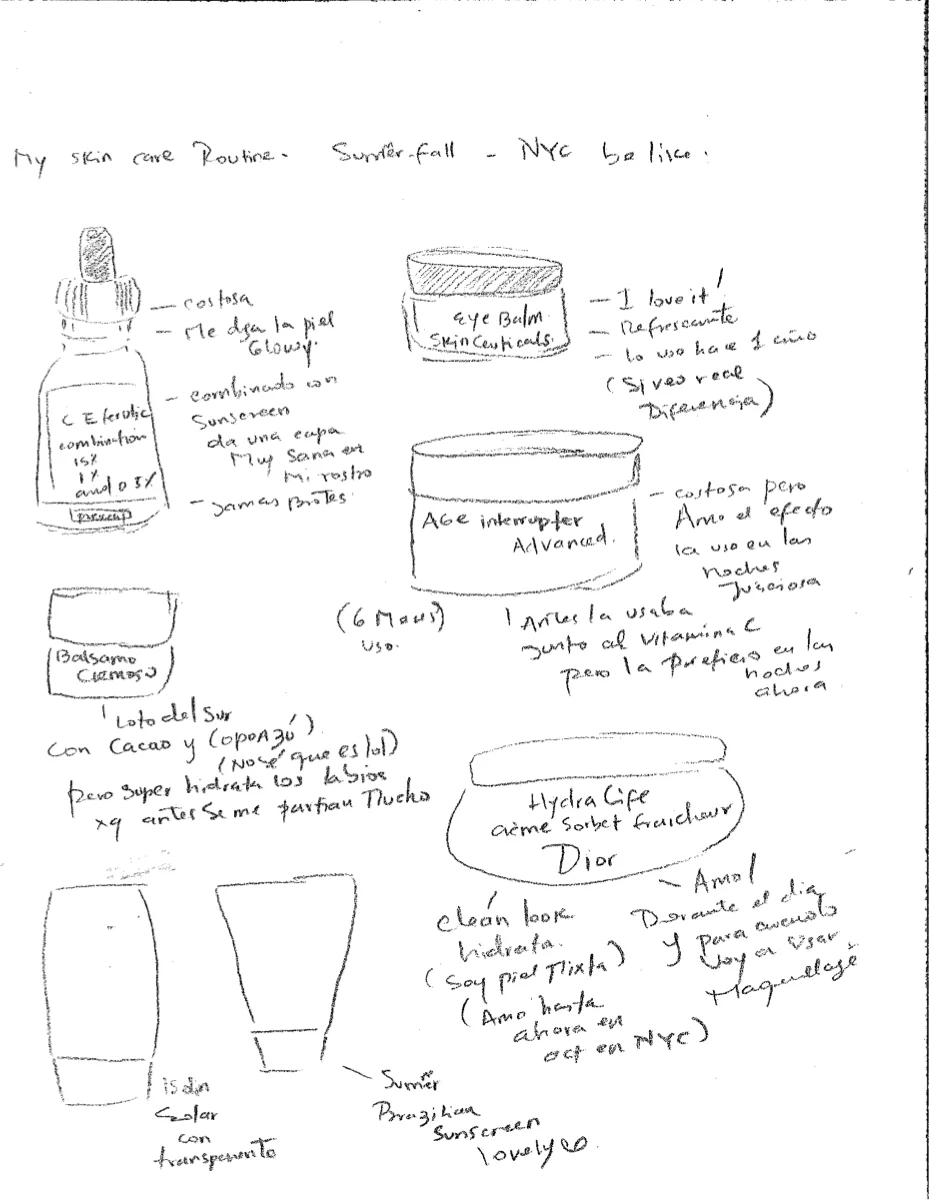 My skin care Routine. Summer-fall - NYC be like.
- costosa
- Me deja la piel
Glowy.
- combinado con
Sunscreen
da una capa
Muy Sana en
Mi rostro
- Jamas Brotes.
C E ferulic
combination
15%
1%
and 0 5%
Eye Balm
SkinCeuticals.
- I love it!
- Refrescante
- lo uso hace 1 año
(Si veo real
Diferencia)
AGE interrupter
Advanced.
- costosa pero
Amo el efecto
la uso en las
noches
Juiciosa
(6 Meses)
uso.
Antes la usaba
junto al Vitamina C
pero la prefiero en las
noches
ahora
Balsamo
Cremoso
Loto del Sur
con Cacao y (opoazú)
(No sé que es lol)
pero super hidrata los labios
xq antes se me partían Mucho
Hydra Life
crème Sorbet fraicheur
Dior
clean look
hidrata.
(Soy piel Mixta)
(Amo hasta
ahora en
oct en NYC)
- Amo!
Durante el dia
y para cuando
voy a usar
Maquillaje
isdin
Solar
con
- Summer
Brazilian
Sunscreen
lovely